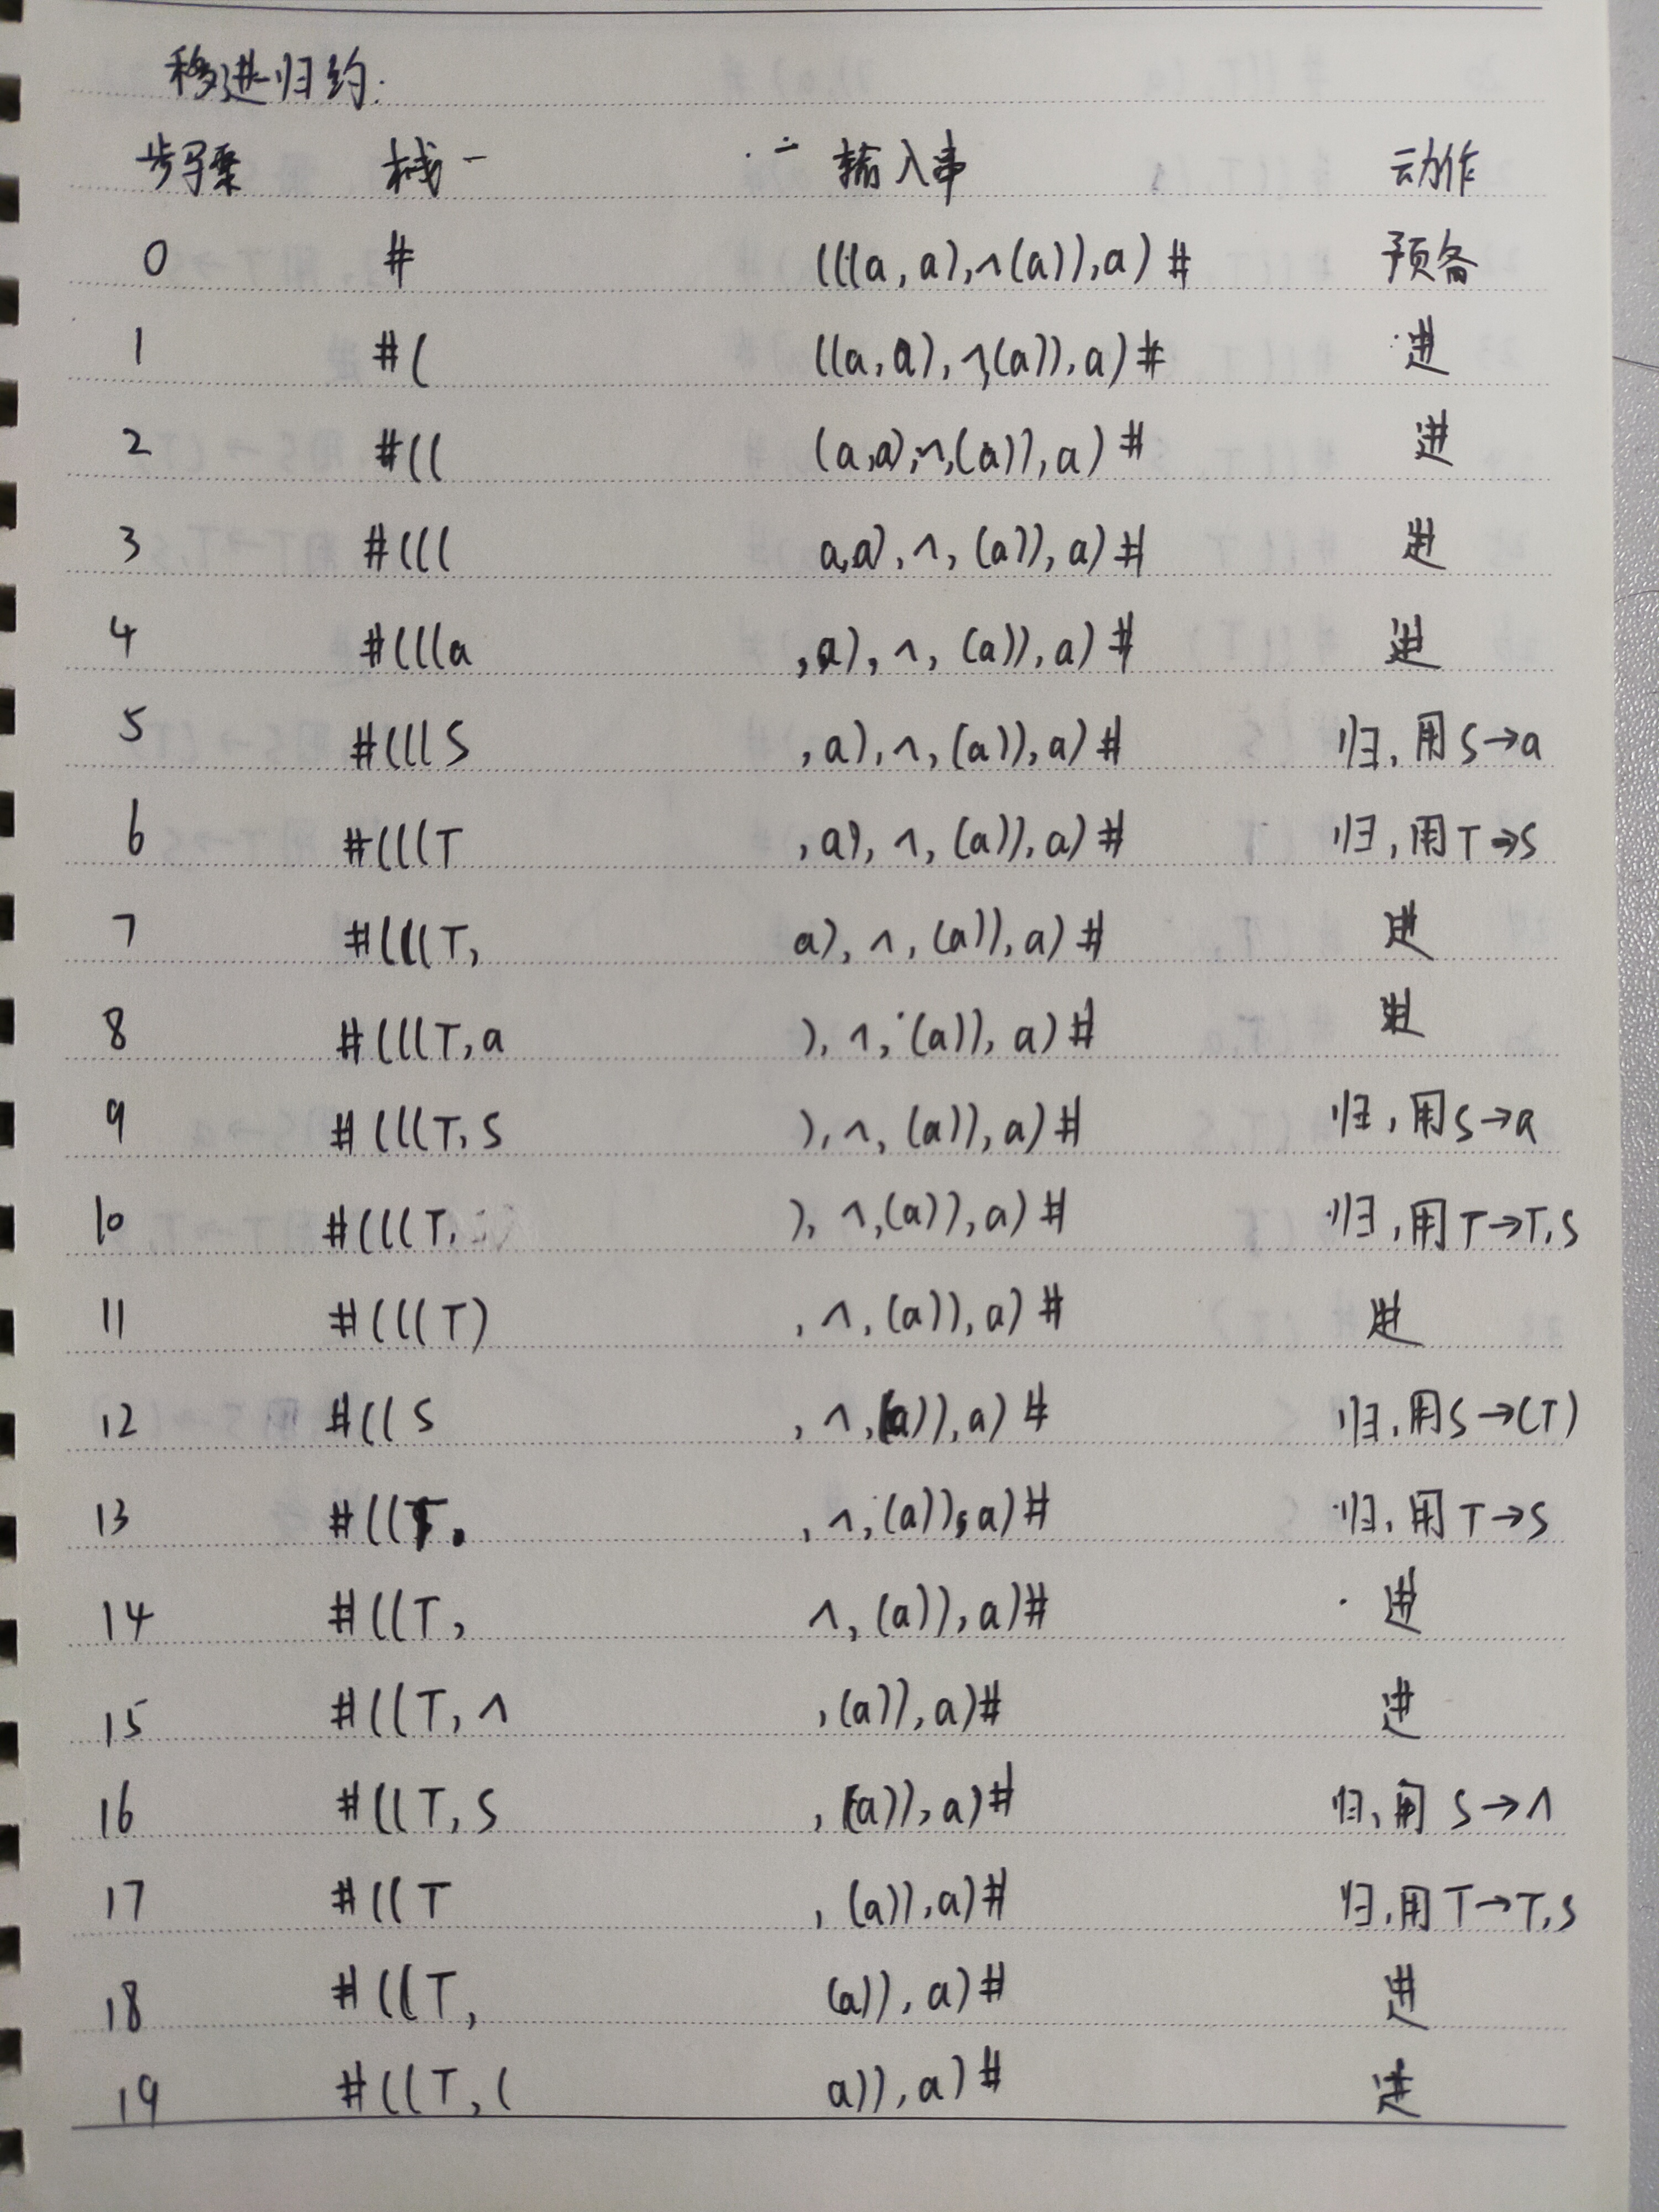 移进归约:
步骤 栈 输入串 动作
0 # (((a,a),∧(a)),a)# 预备
1 #( ((a,a),∧,(a)),a)# 进
2 #(( (a,a),∧,(a)),a)# 进
3 #((( a,a),∧,(a)),a)# 进
4 #(((a ,a),∧,(a)),a)# 进
5 #(((S ,a),∧,(a)),a)# 归,用S→a
6 #(((T ,a),∧,(a)),a)# 归,用T→S
7 #(((T, a),∧,(a)),a)# 进
8 #(((T,a ),∧,(a)),a)# 进
9 #(((T,S ),∧,(a)),a)# 归,用S→a
10 #(((T ),∧,(a)),a)# 归,用T→T,S
11 #(((T) ,∧,(a)),a)# 进
12 #((S ,∧,(a)),a)# 归,用S→(T)
13 #((T ,∧,(a)),a)# 归,用T→S
14 #((T, ∧,(a)),a)# 进
15 #((T,∧ ,(a)),a)# 进
16 #((T,S ,(a)),a)# 归,用S→∧
17 #((T ,(a)),a)# 归,用T→T,S
18 #((T, (a)),a)# 进
19 #((T,( a)),a)# 进